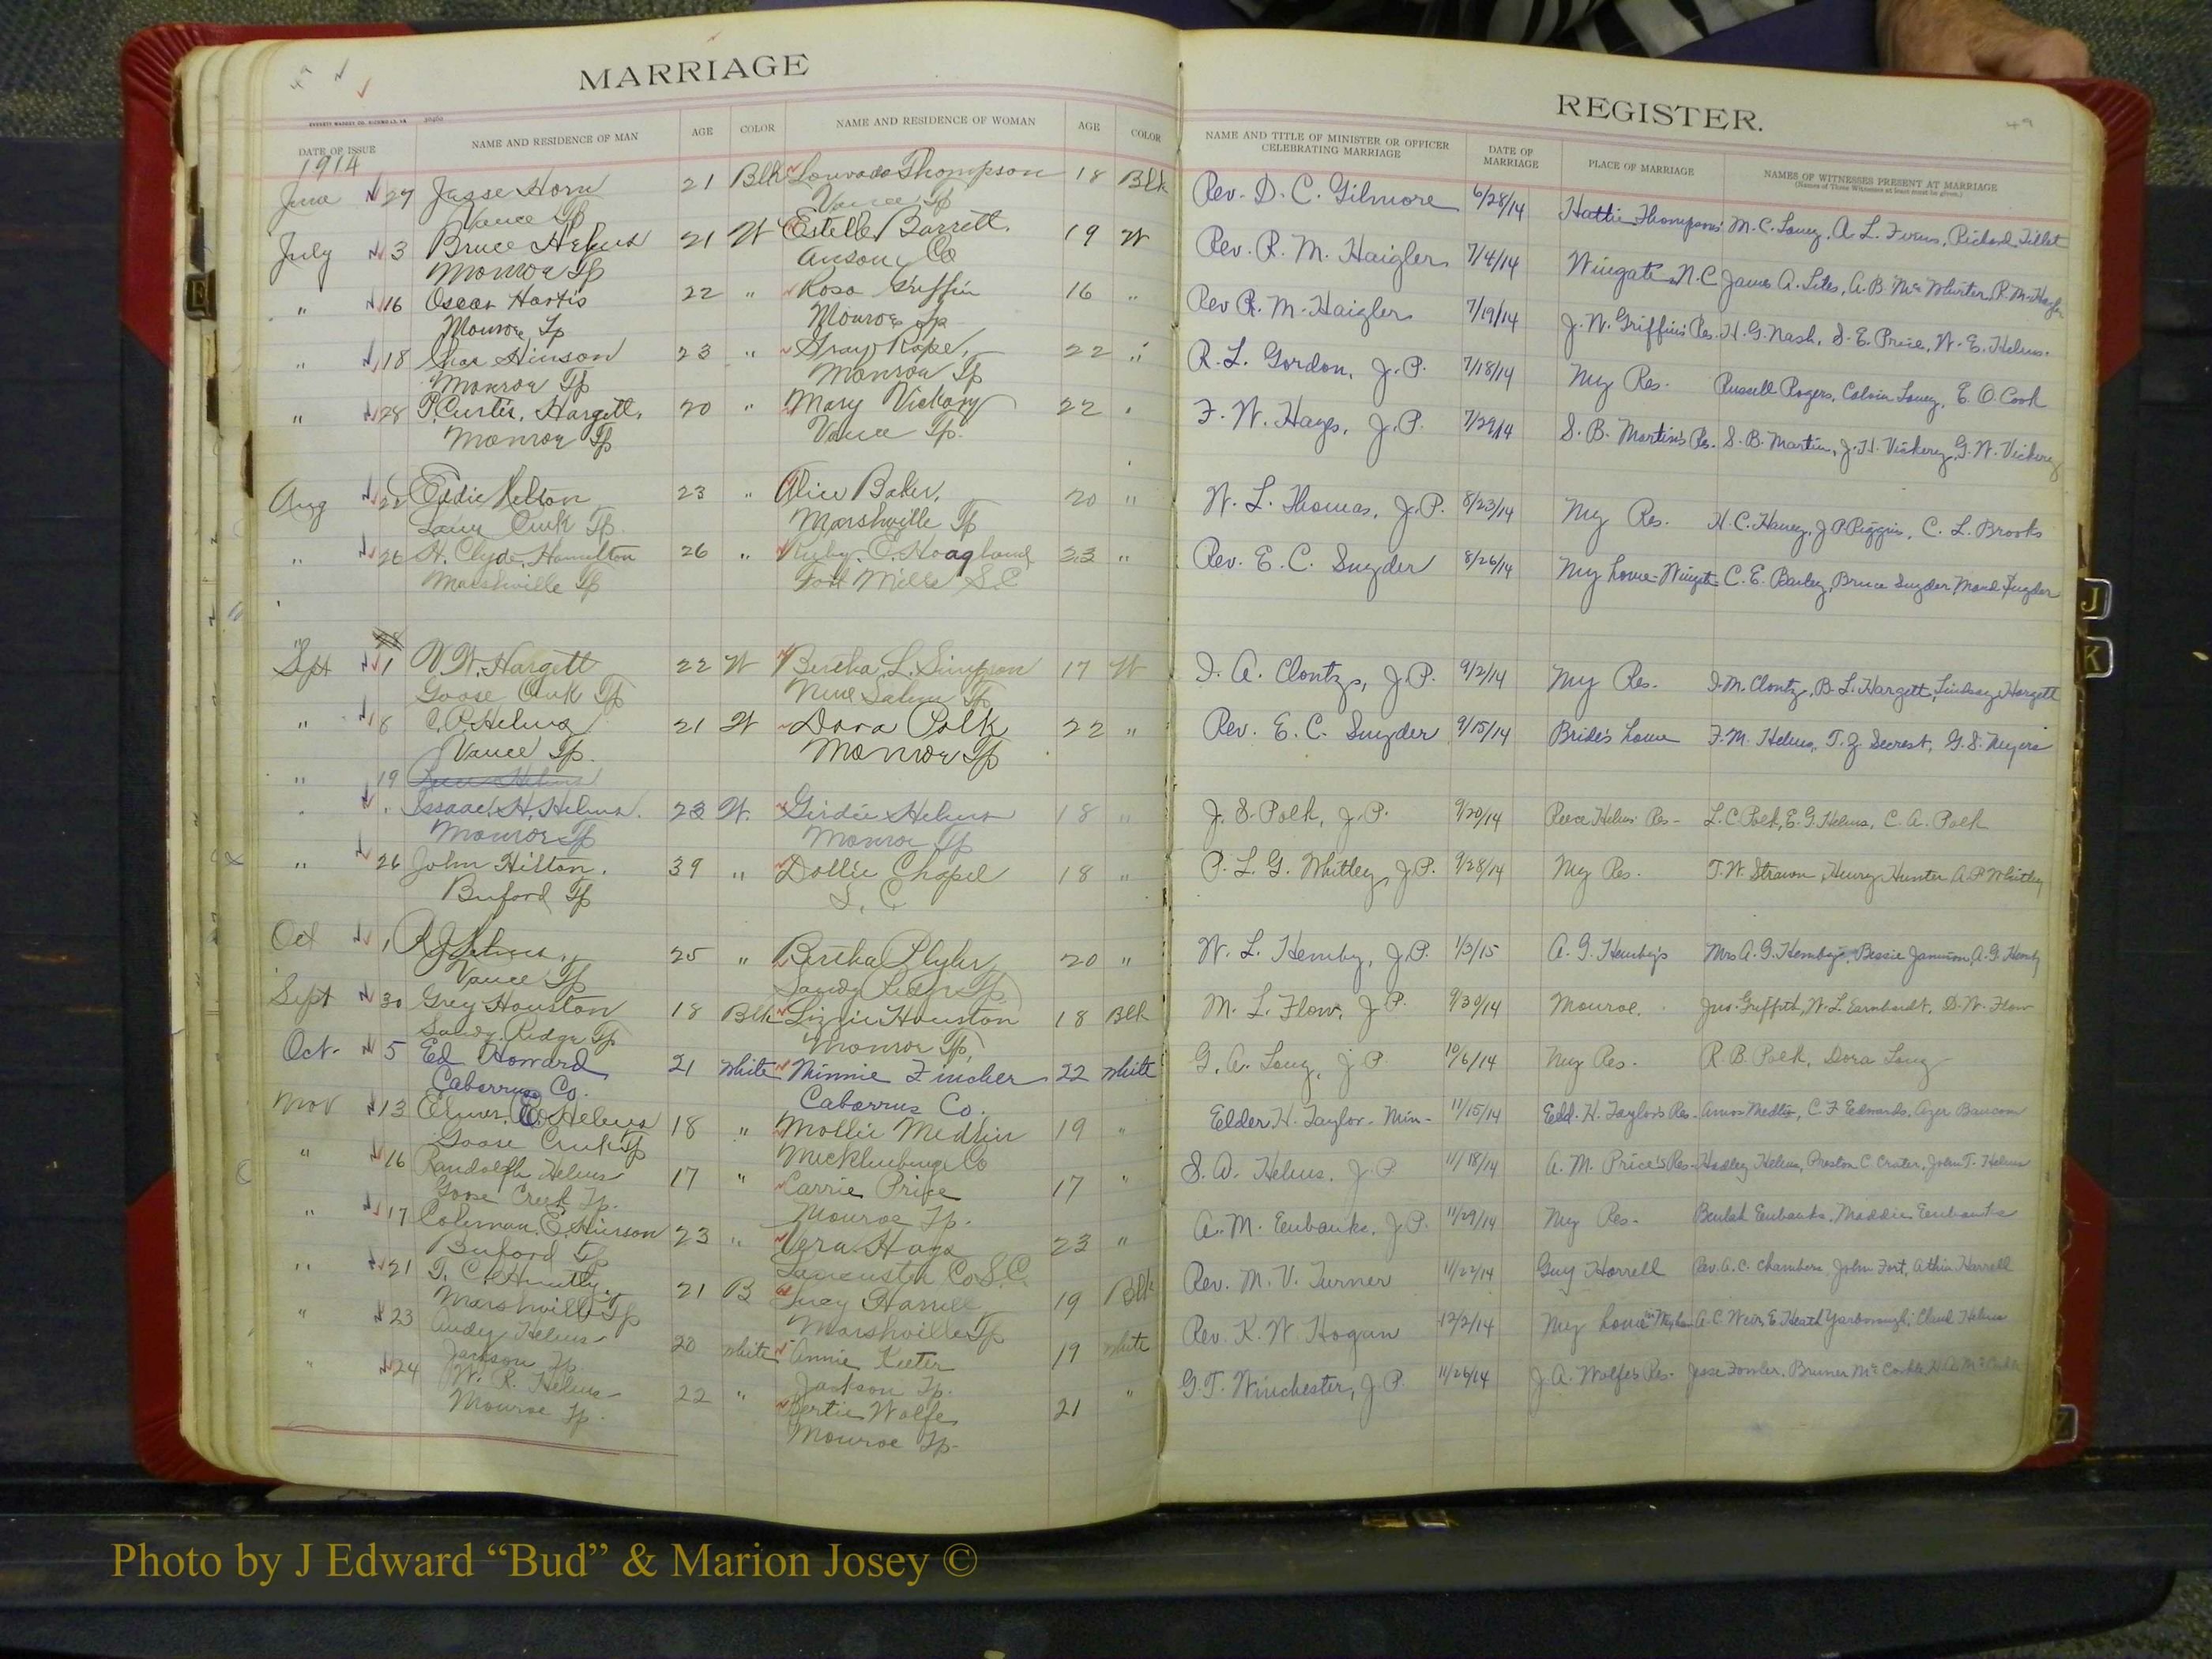 MARRIAGE
EVERETT WADDEY CO. RICHMOND, VA.
DATE OF ISSUE NAME AND RESIDENCE OF MAN AGE COLOR NAME AND RESIDENCE OF WOMAN AGE COLOR
1914
June 27 Jesse Horn 21 Blk Thompson 18 Blk
Vance Tp Vance Tp
July 3 Bruce Helms 21 W Estelle Barrett 19 W
Monroe Tp Anson Co
" 16 Oscar Hartis 22 " Rosa Griffin 16 "
Monroe Tp Monroe Tp
" 18 Chas Hinson 23 " Gray Rape, 22 "
Monroe Tp Monroe Tp
" 28 P. Curtis Hargett. 20 " Mary Vickory 22 "
Monroe Tp Vance Tp.
Aug 22 Eddie Helton 23 " Alice Baker, 20 "
Tp. Marshville Tp
" 26 H. Clyde Hamilton 26 " Ruby E. Hoagland 23 "
Marshville Tp Fort Mills S.C
Sept 1 V. W. Hargett 22 W Bertha L. Simpson 17 W
Goose Creek Tp New Salem Tp
" 8 C. P. Helms 21 W Dora Polk 22 "
Vance Tp. Monroe Tp
" 19
Issaac H. Helms. 23 W. Girdie Helms 18 "
Monroe Tp Monroe Tp
" 26 John Hilton. 39 " Dollie Chapel 18 "
Buford Tp S. C
Oct 1 Helms, 25 " Bertha Plyler 20 "
Vance Tp Sandy Ridge Tp
Sept 30 Grey Houston 18 Blk Lizzie Houston 18 Blk
Sandy Ridge Tp Monroe Tp
Oct. 5 Ed Howard 21 White Minnie Fincher 22 White
Cabarrus Co. Cabarrus Co.
Nov 13 Elmer E. Helms 18 " Mollie Medlin 19 "
Goose Creek Tp Mecklenburg Co
" 16 Randolph Helms 17 " Carrie Price 17 "
Goose Creek Tp. Monroe Tp.
" 17 Coleman E. Hinson 23 " Vera Hays 23 "
Buford Tp Lancaster Co S.C.
" 21 T. C. Huntley 21 B Lucy Harrell 19 Blk
Marshville Tp Marshville Tp
" 23 Andy Helms 20 White Annie Keeter 19 White
Jackson Tp. Jackson Tp.
" 24 W. R. Helms 22 " Bertie Wolfe 21 "
Monroe Tp. Monroe Tp.
REGISTER.
49
NAME AND TITLE OF MINISTER OR OFFICER CELEBRATING MARRIAGE DATE OF MARRIAGE PLACE OF MARRIAGE NAMES OF WITNESSES PRESENT AT MARRIAGE
(Names of Three Witnesses at least must be given.)
Rev. D. C. Gilmore 6/28/14 Hattie Thompson's M. C. Laney, A. L. Richard Tillet
Rev. R. M. Haigler 7/4/14 Wingate N.C James A. Lites, A. B. McWhirter, R. M. Haigler
Rev R. M. Haigler 7/19/14 J. W. Griffin's Res. H. G. Nash, S. E. Price, W. E. Helms.
R. L. Gordon, J. P. 7/18/14 My Res. Russell Rogers, Calvin Laney, E. O. Cook
F. W. Hays, J. P. 7/29/14 S. B. Martin's Res. S. B. Martin, J. H. Vickery, G. W. Vickery
W. L. Thomas, J. P. 8/23/14 My Res. H. C. Haney, J P Riggins, C. L. Brooks
Rev. E. C. Snyder 8/26/14 My home - Wingate C. E. Bruce Snyder, Maud Snyder
I. A. Clontz, J. P. 9/2/14 My Res. I. M. Clontz, B. L. Hargett, Lindsay Hargett
Rev. E. C. Snyder 9/15/14 Bride's home F. M. Helms, T. J. Secrest, G. S. Myers
J. S. Polk, J. P. 9/20/14 Reece Helms Res - L. C Polk, E. G. Helms, C. A. Polk
P. L. G. Whitley, J. P. 9/28/14 My Res. T. W. Strawn, Henry Hunter A. P Whitley
W. L. Hemby, J. P. 1/3/15 A. G. Hemby's Mrs A. G. Hemby, Bessie A. G. Hemby
M. L. Flow, J P. 9/30/14 Monroe. Jno. Griffith, W. L. Earnhardt, D. W. Flow
G. A. Long, J P. 10/6/14 My Res. R. B. Polk, Dora Long
Elder H. Taylor - Min - 11/15/14 Eld. H. Taylor's Res - Amos Medlin, C. F. Edwards, Azer Baucom
S. A. Helms, J. P 11/18/14 A. M. Price's Res - Hadley Helms, Preston C. Crater, John T. Helms
A. M. Eubanks, J. P. 11/29/14 My Res - Beulah Eubanks, Maddie Eubanks
Rev. M. V. Turner 11/22/14 Guy Harrell Rev. A. C. Chambers, John Fort, Harrell
Rev. K. W. Hogan 12/2/14 My home A. C. Weir, E. Heath Yarborough, Claud Helms
G. T. Winchester, J P. 11/26/14 J. A. Wolfe's Res. Jesse Fowler, Bruner McCorkle
J
K
Photo by J Edward “Bud” & Marion Josey ©